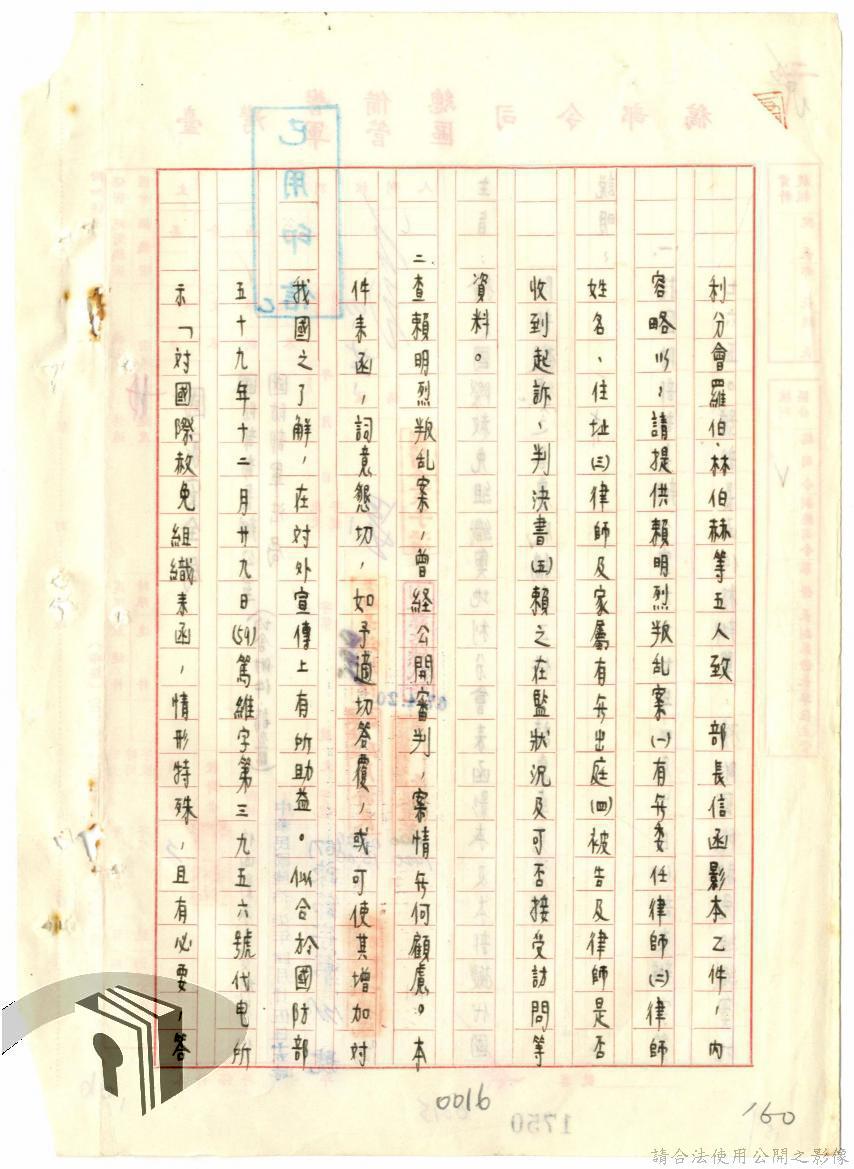 利分會羅伯.林伯赫等五人致　部長信函影本乙件，內
容略以，請提供賴明烈叛乱案(一)有無委任律師(二)律師
姓名、住址(三)律師及家屬有無出庭(四)被告及律師是否
收到起訴、判決書(五)賴之在監狀況及可否接受訪問等
資料。
二查賴明烈叛乱案，曾經公開審判，案情無何顧慮。本
件来函，詞意懇切，如予適切答覆，或可使其增加对
我國之了解，在対外宣傳上有所助益。似合於國防部
五十九年十二月廿九日(59)篤維字第三九五六號代电所
示「対國際赦免組織来函，情形特殊，且有必要，答
已用印信
0016
160
1750
請合法使用公開之影像